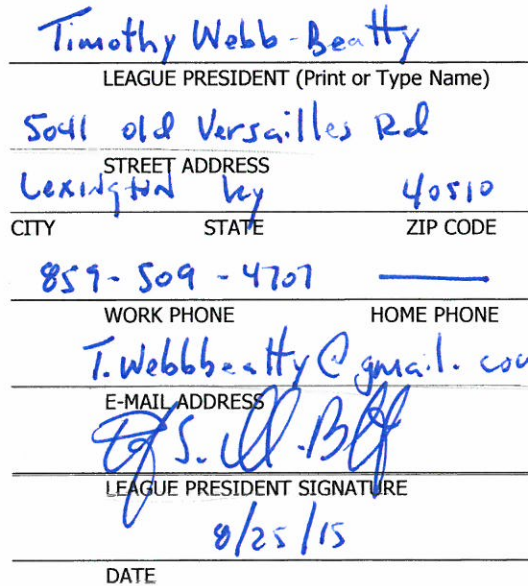 Timothy Webb-Beatty
LEAGUE PRESIDENT (Print or Type Name)
5041 old Versailles Rd
STREET ADDRESS
Lexington Ky 40510
CITY STATE ZIP CODE
859-509-4707 —
WORK PHONE HOME PHONE
T.Webbbeatty@gmail.com
E-MAIL ADDRESS
LEAGUE PRESIDENT SIGNATURE
8/25/15
DATE